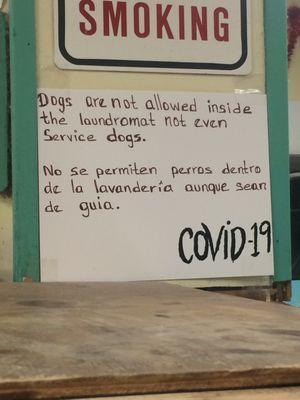 SMOKING
Dogs are not allowed inside
the laundromat not even
Service dogs.
No se permiten perros dentro
de la lavandería aunque sean
de guia.
COVID-19